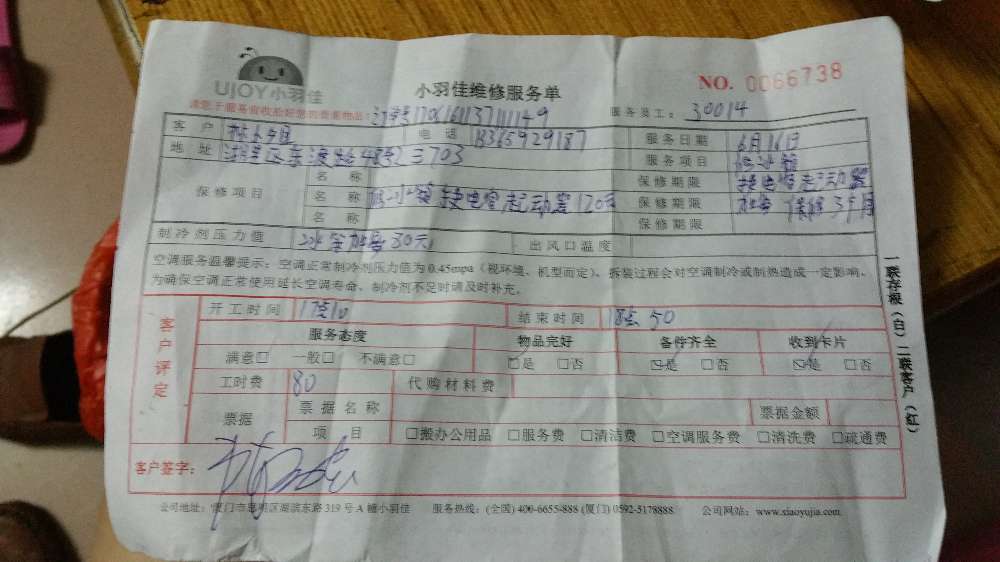 UJOY小羽佳
小羽佳维修服务单
NO. 0066738
请您于服务前收拾好您的贵重物品: 订单号170616113711149 服务员工: 30014
客户 电话 18365929187 服务日期 6月16日
地址 湖里区东渡路48号之703 服务项目 修冰箱
保修项目 名称 保修期限 换电容起动器
名称 修冰箱 换电容起动器120元 保修期限 加氟 保修3个月
名称 保修期限
制冷剂压力值 加氟30元 出风口温度
空调服务温馨提示: 空调正常制冷剂压力值为0.45mpa(视环境、机型而定)、拆装过程会对空调制冷或制热造成一定影响,
为确保空调正常使用延长空调寿命、制冷剂不足时请及时补充。
客户评定
开工时间 17点10 结束时间 18点50
服务态度 物品完好 备件齐全 收到卡片
满意□ 一般□ 不满意□ ☑是 □否 ☑是 □否 ☑是 □否
工时费 80 代购材料费
票据 票据名称 票据金额
项目 □搬办公用品 □服务费 □清洁费 □空调服务费 □清洗费 □疏通费
客户签字:
公司地址: 厦门市思明区湖滨东路319号A幢小羽佳 服务热线: (全国) 400-6655-888 (厦门) 0592-5178888 公司网站: www.xiaoyujia.com
一联存根(白)二联客户(红)